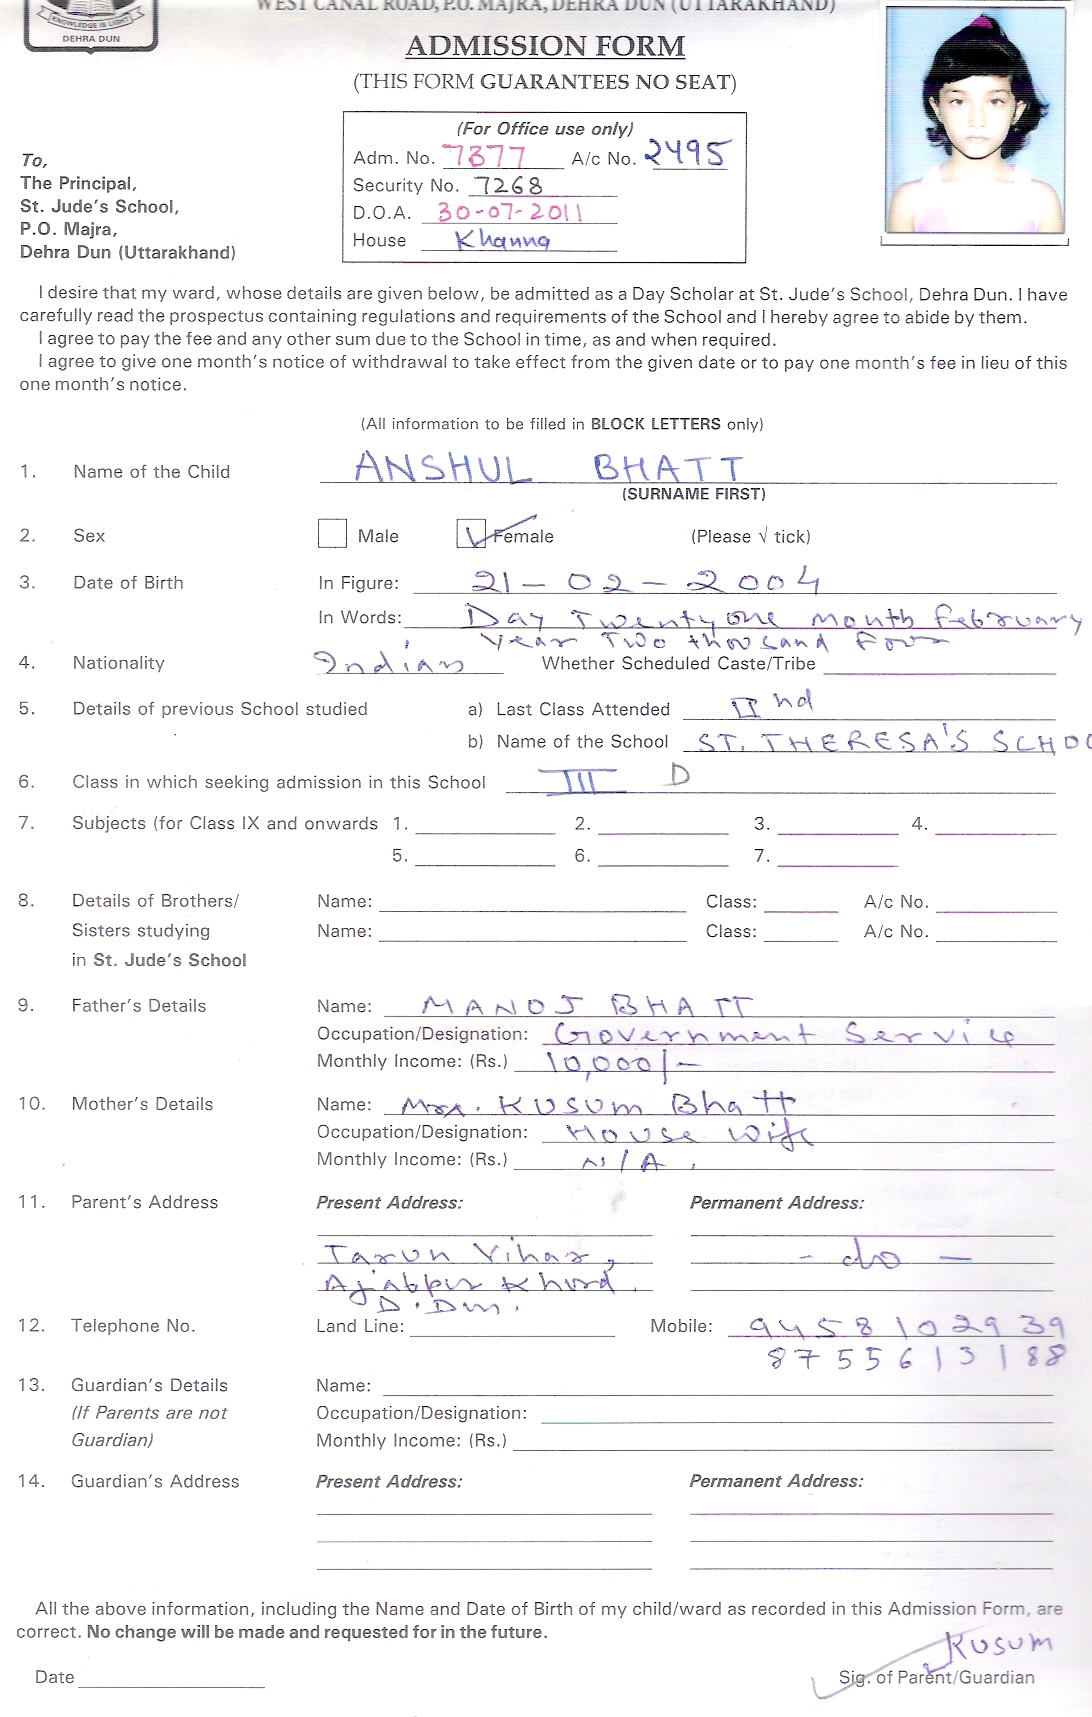 KNOWLEDGE IS LIGHT
DEHRA DUN
WEST CANAL ROAD, P.O. MAJRA, DEHRA DUN (UTTARAKHAND)
ADMISSION FORM
(THIS FORM GUARANTEES NO SEAT)
(For Office use only)
Adm. No. 7377 A/c No. 2495
Security No. 7268
D.O.A. 30-07-2011
House Khanna
To,
The Principal,
St. Jude's School,
P.O. Majra,
Dehra Dun (Uttarakhand)
I desire that my ward, whose details are given below, be admitted as a Day Scholar at St. Jude's School, Dehra Dun. I have
carefully read the prospectus containing regulations and requirements of the School and I hereby agree to abide by them.
I agree to pay the fee and any other sum due to the School in time, as and when required.
I agree to give one month's notice of withdrawal to take effect from the given date or to pay one month's fee in lieu of this
one month's notice.
(All information to be filled in BLOCK LETTERS only)
1. Name of the Child ANSHUL BHATT
(SURNAME FIRST)
2. Sex Male Female (Please √ tick)
3. Date of Birth In Figure: 21-02-2004
In Words: Day Twenty one month february
year Two thousand Four
4. Nationality Indian Whether Scheduled Caste/Tribe
5. Details of previous School studied a) Last Class Attended II nd
b) Name of the School ST. THERESA'S SCHOO
6. Class in which seeking admission in this School III D
7. Subjects (for Class IX and onwards 1. 2. 3. 4.
5. 6. 7.
8. Details of Brothers/ Name: Class: A/c No.
Sisters studying Name: Class: A/c No.
in St. Jude's School
9. Father's Details Name: MANOJ BHATT
Occupation/Designation: Government Service
Monthly Income: (Rs.) 10,000/-
10. Mother's Details Name: Mrs. KUSUM Bhatt
Occupation/Designation: House wife
Monthly Income: (Rs.) N/A.
11. Parent's Address Present Address: Permanent Address:
Tarun Vihar, - do -
Ajabpur Khurd.
D. Dun.
12. Telephone No. Land Line: Mobile: 9458102939
8755613188
13. Guardian's Details Name:
(If Parents are not Occupation/Designation:
Guardian) Monthly Income: (Rs.)
14. Guardian's Address Present Address: Permanent Address:
All the above information, including the Name and Date of Birth of my child/ward as recorded in this Admission Form, are
correct. No change will be made and requested for in the future.
Kusum
Date Sig. of Parent/Guardian